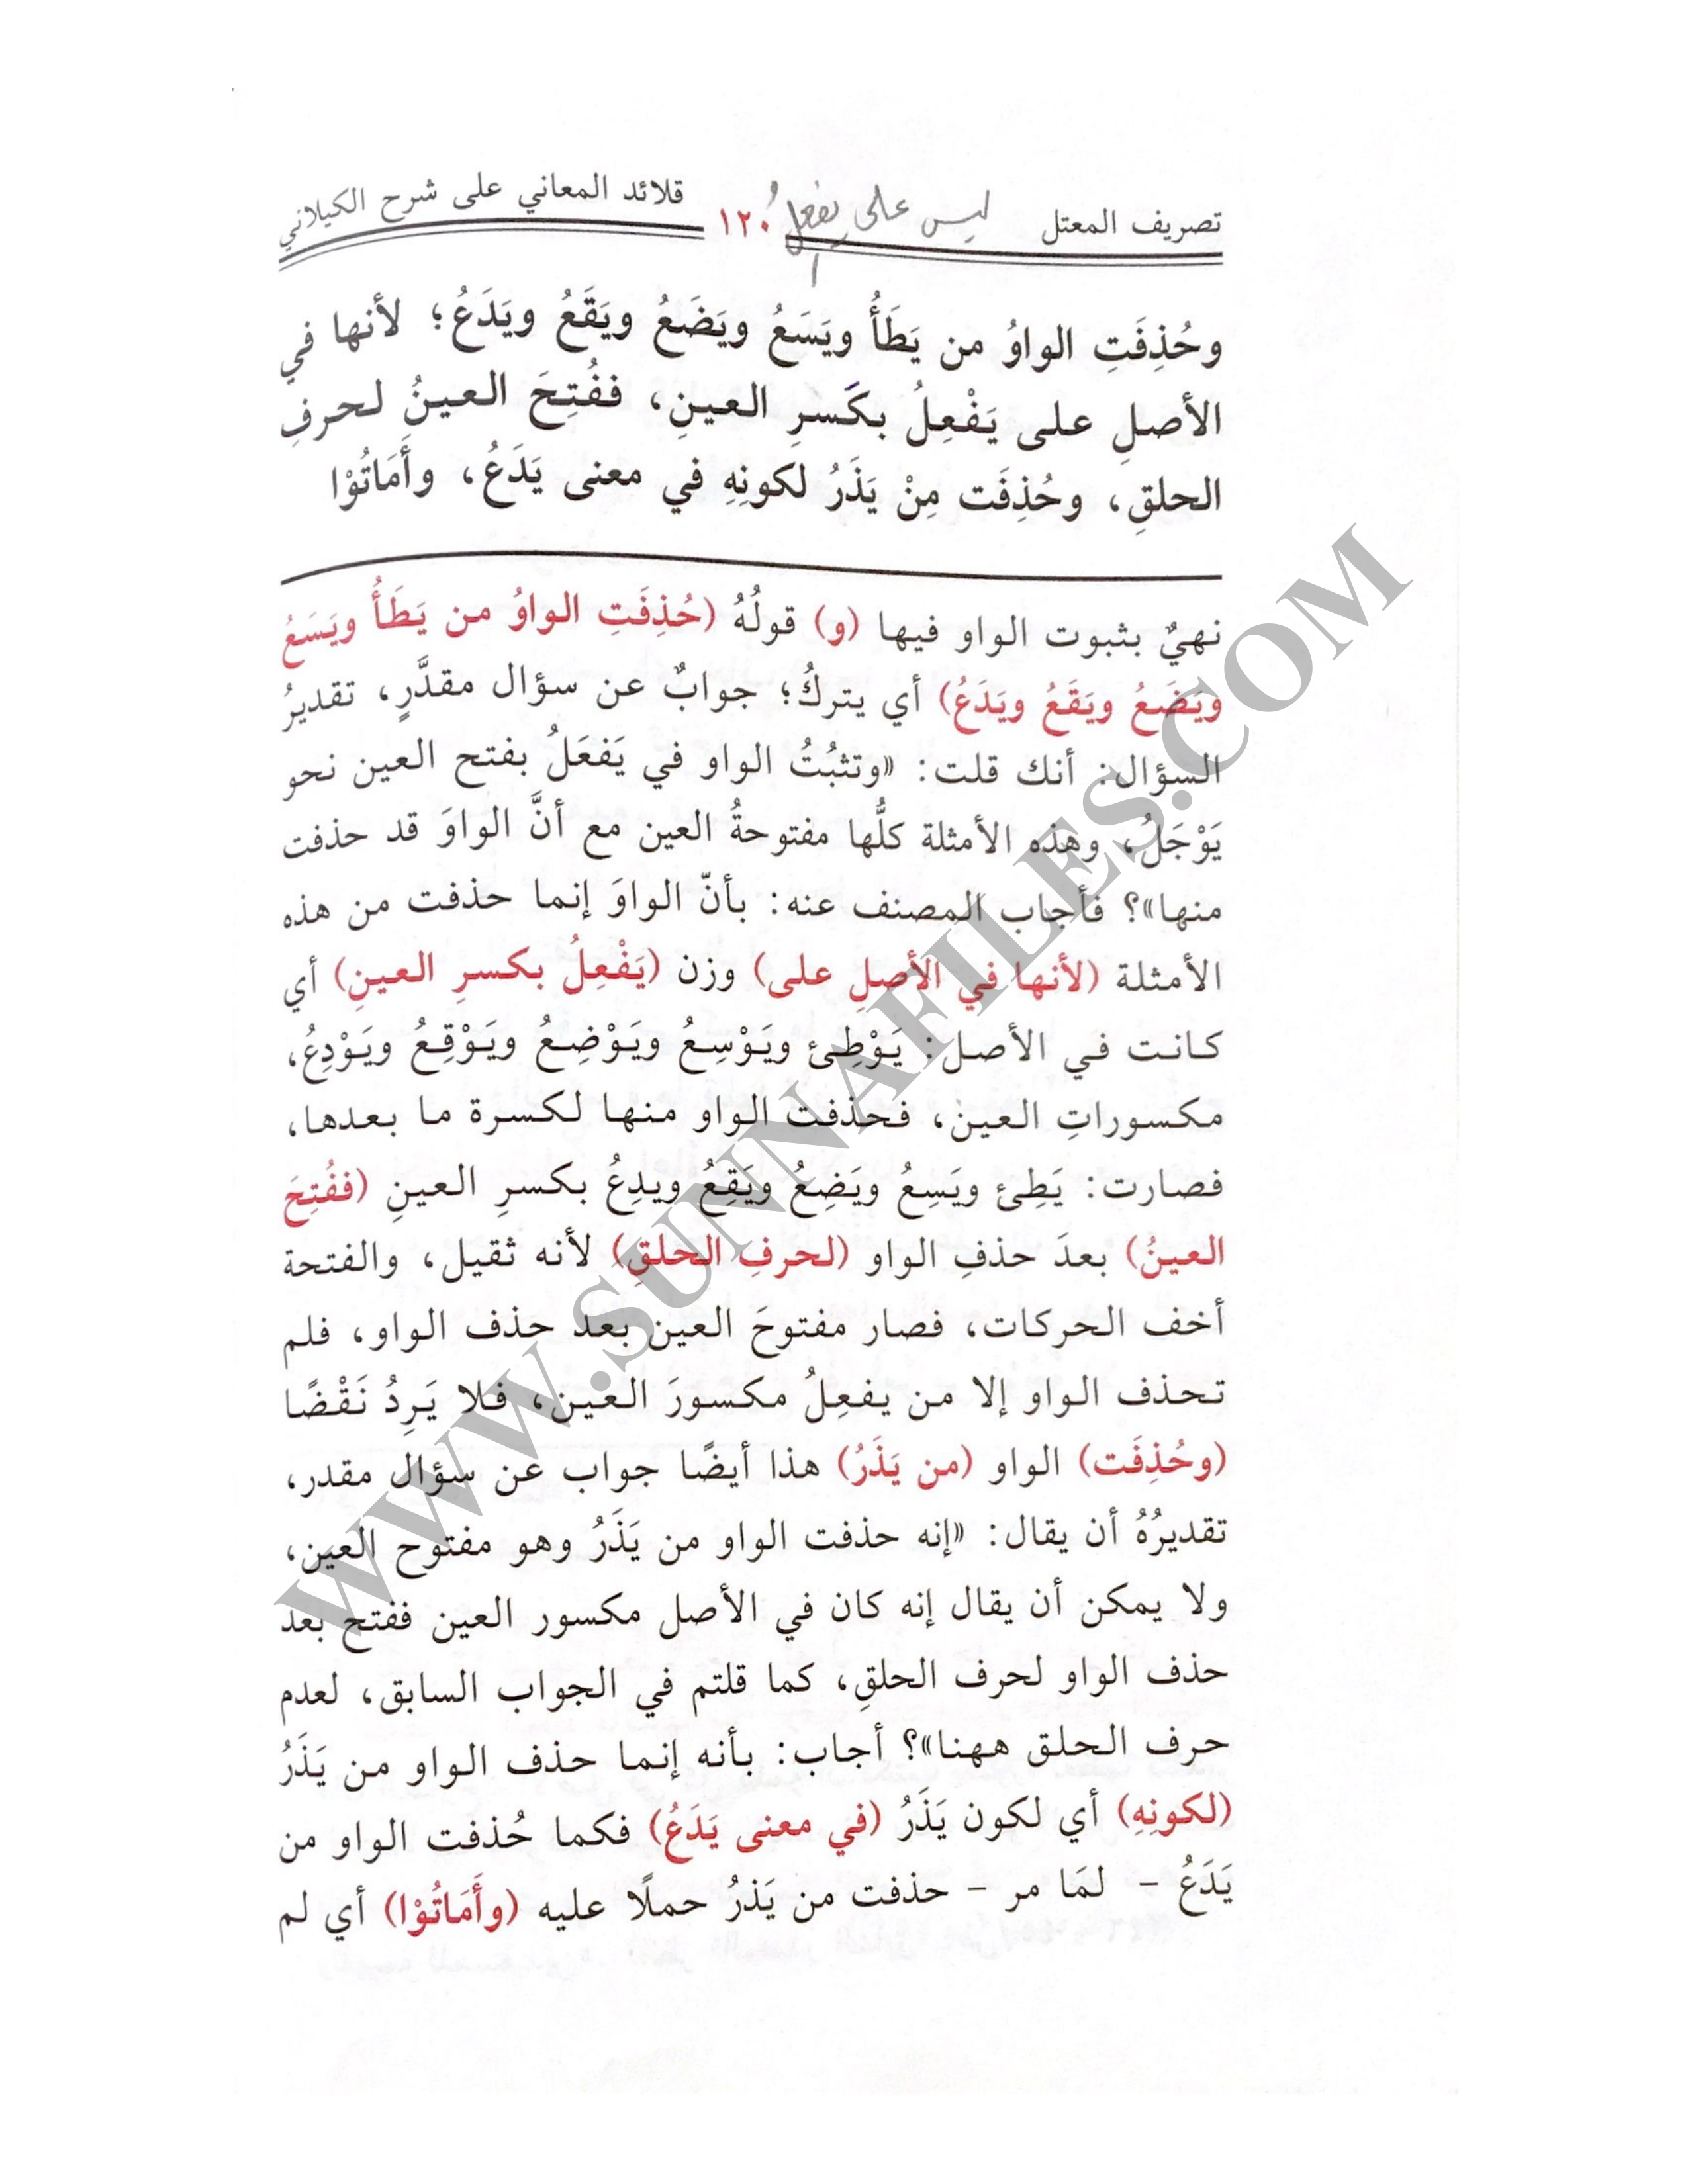 تصريف المعتل ليس على يفعل ١٢٠ قلائد المعاني على شرح الكيلاني
وحُذِفَتِ الواوُ من يَطَأُ ويَسَعُ ويَضَعُ ويَقَعُ ويَدَعُ؛ لأنها في
الأصلِ على يَفْعِلُ بكَسرِ العينِ، ففُتِحَ العينُ لحرفِ
الحلقِ، وحُذِفَت مِنْ يَذَرُ لكونِهِ في معنى يَدَعُ، وأَمَاتُوْا
نهيٌ بثبوت الواو فيها (و) قولُهُ (حُذِفَتِ الواوُ من يَطَأُ ويَسَعُ
ويَضَعُ ويَقَعُ ويَدَعُ) أي يتركُ؛ جوابٌ عن سؤال مقدَّرٍ، تقديرُ
السؤال: أنك قلت: «وتثبُتُ الواو في يَفعَلُ بفتح العين نحو
يَوْجَلُ، وهذه الأمثلة كلُّها مفتوحةُ العين مع أنَّ الواوَ قد حذفت
منها»؟ فأجاب المصنف عنه: بأنّ الواوَ إنما حذفت من هذه
الأمثلة (لأنها في الأصلِ على) وزن (يَفْعِلُ بكسرِ العينِ) أي
كانت في الأصل: يَوْطِئ ويَوْسِعُ ويَوْضِعُ ويَوْقِعُ ويَوْدِعُ،
مكسوراتِ العين، فحذفت الواو منها لكسرة ما بعدها،
فصارت: يَطِئ ويَسِعُ ويَضِعُ ويَقِعُ ويدِعُ بكسرِ العينِ (ففُتِحَ
العينُ) بعدَ حذفِ الواو (لحرفِ الحلقِ) لأنه ثقيل، والفتحة
أخف الحركات، فصار مفتوحَ العين بعد حذف الواو، فلم
تحذف الواو إلا من يفعِلُ مكسورَ العين، فلا يَرِدُ نَقْضًا
(وحُذِفَت) الواو (من يَذَرُ) هذا أيضًا جواب عن سؤال مقدر،
تقديرُهُ أن يقال: «إنه حذفت الواو من يَذَرُ وهو مفتوح العين،
ولا يمكن أن يقال إنه كان في الأصل مكسور العين ففتح بعد
حذف الواو لحرف الحلقِ، كما قلتم في الجواب السابق، لعدم
حرف الحلق ههنا»؟ أجاب: بأنه إنما حذف الواو من يَذَرُ
(لكونِهِ) أي لكون يَذَرُ (في معنى يَدَعُ) فكما حُذفت الواو من
يَدَعُ - لمَا مر - حذفت من يَذرُ حملًا عليه (وأَمَاتُوْا) أي لم
WWW.SUNNAFILES.COM